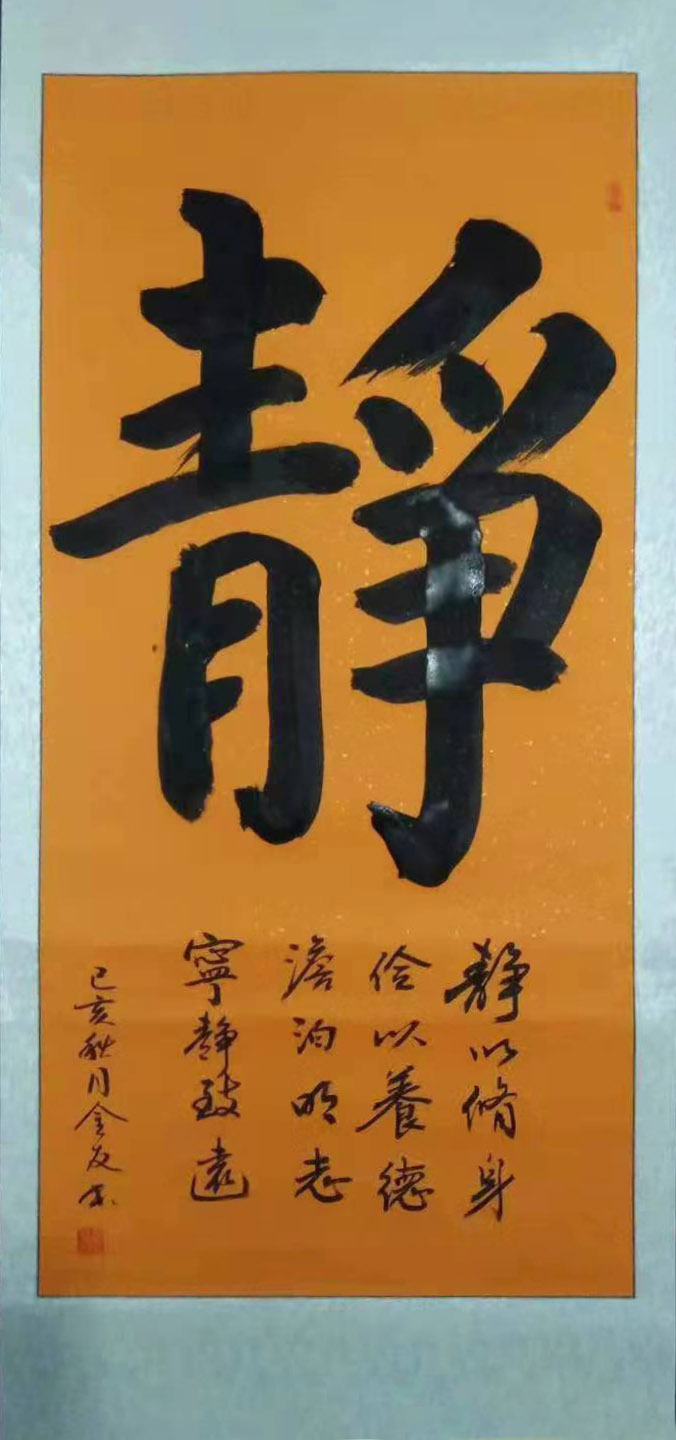 靜
靜以脩身
儉以養德
澹泊明志
寧靜致遠
己亥秋月金友書